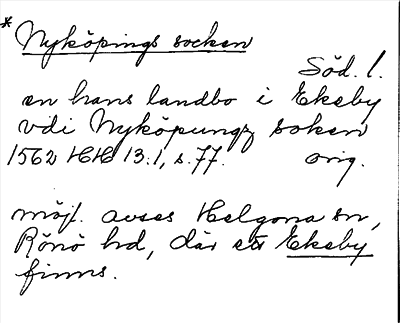 * Nyköpings socken
Söd. l.
en hans landbo i Ekeby
vdi Nyköpungz soken
1562 HH 13:1, s. 77. orig.
möjl. avses Helgona sn,
Rönö hd, där ett Ekeby
finns.